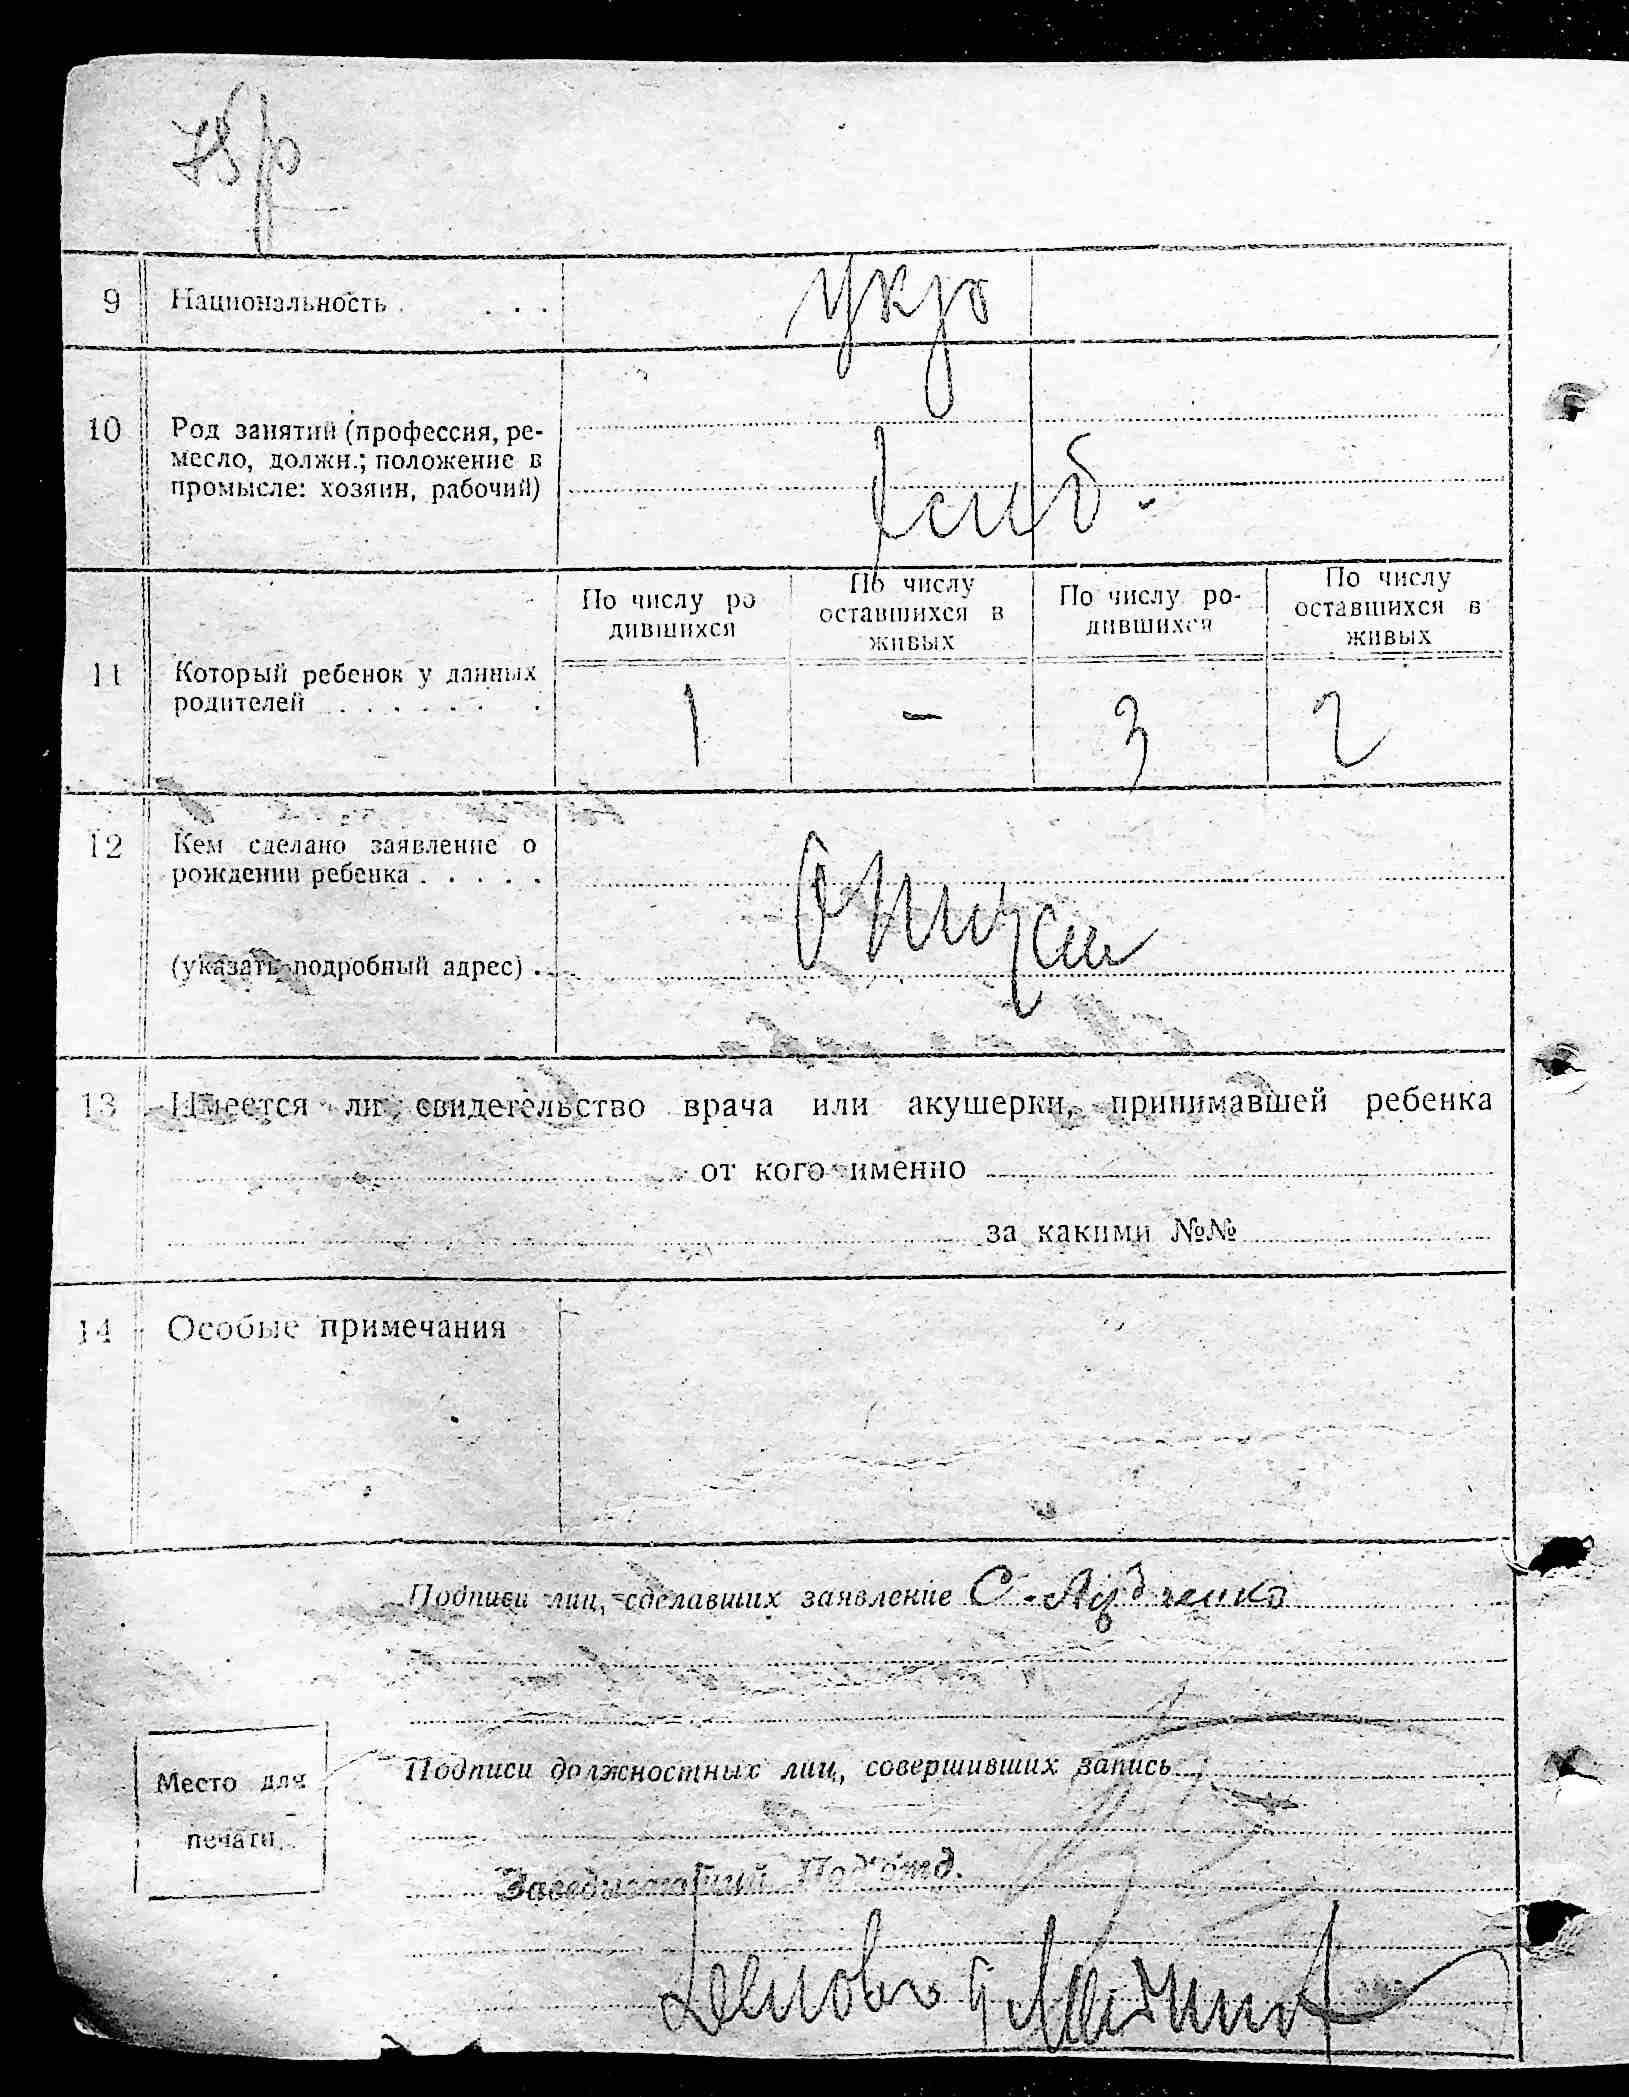 9 Национальность . . . . укр
10 Род занятий (профессия, ре-
месло, должн.; положение в
промысле: хозяин, рабочий)
По числу ро
дившихся
По числу
оставшихся в
живых
По числу ро-
дившихся
По числу
оставшихся в
живых
11 Который ребенок у данных
родителей . . . . . . . 1 - 3 2
12 Кем сделано заявление о
рождении ребенка . . . . .
(указать подробный адрес) .
13 Имеется ли свидетельство врача или акушерки, принимавшей ребенка
от кого именно
за какими №№
14 Особые примечания
Подписи лиц, сделавших заявление
Подписи должностных лиц, совершивших запись
Место для
печати.
Заведывающий Под'отд.